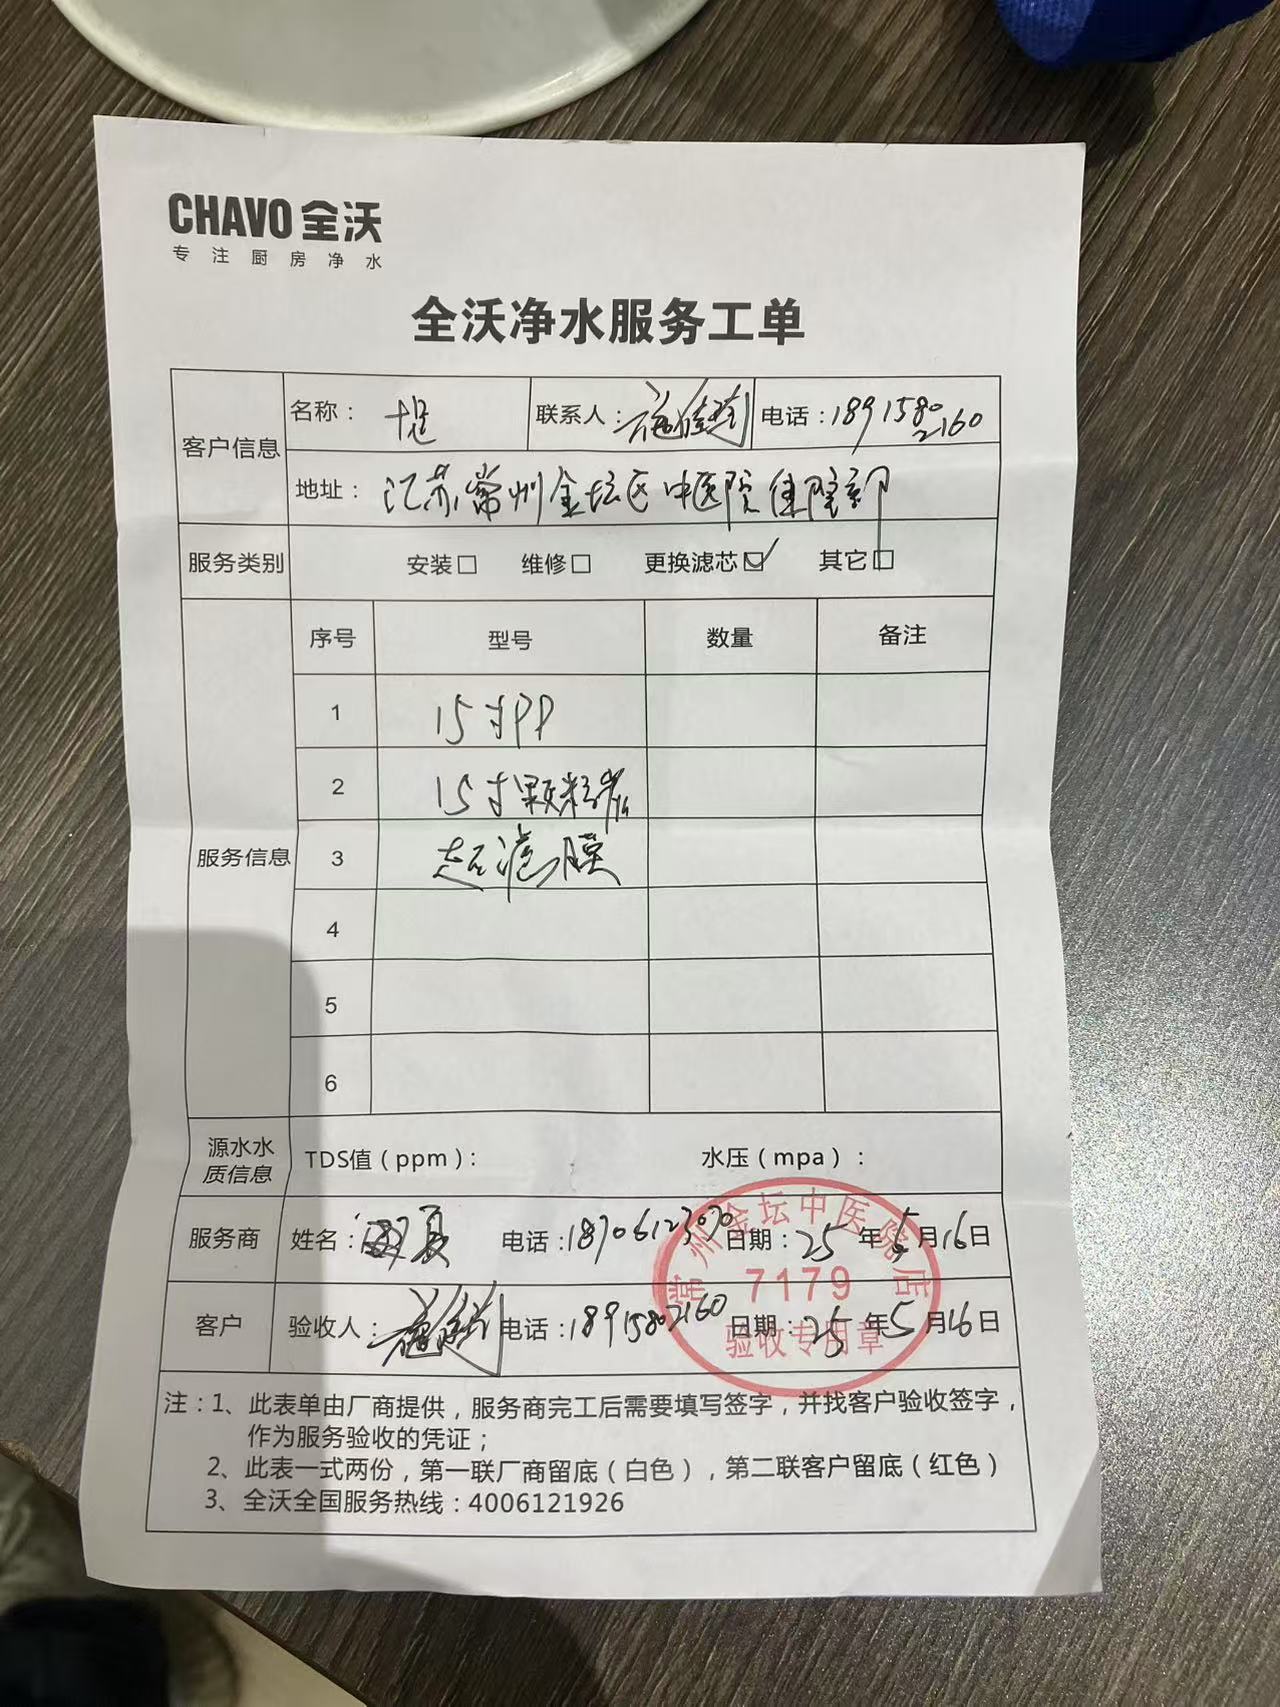 CHAVO 全沃
专注厨房净水
全沃净水服务工单
客户信息
名称：
联系人：施
电话：18915802160
地址：江苏常州金坛区中医院住院部
服务类别
安装□ 维修□ 更换滤芯☑ 其它□
服务信息
序号 型号 数量 备注
1 15寸PP
2 15寸颗粒炭
3 超滤膜
4
5
6
源水水质信息
TDS值（ppm）： 水压（mpa）：
服务商 姓名：夏 电话：18706123070 日期：25年5月16日
客户 验收人：施 电话：18915802160 日期：25年5月16日
常州金坛中医院店
7179
验收专用章
注：1、此表单由厂商提供，服务商完工后需要填写签字，并找客户验收签字，
作为服务验收的凭证；
2、此表一式两份，第一联厂商留底（白色），第二联客户留底（红色）
3、全沃全国服务热线：4006121926